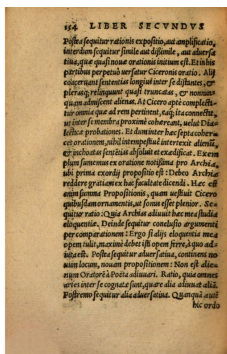 154 LIBER SECVNDVS
Postea sequitur rationis expositio, aut amplificatio,
interdum sequitur simile aut dissimile, aut aduersa⸗
tiua, quæ quasi nouæ orationis initium est. Et in his
partibus perpetuò uersatur Ciceronis oratio. Alij
coaceruant sententias longius inter se distantes, &
plerasq; relinquunt quasi truncatas, & nonnun⸗
quam admiscent alienas. At Cicero aptè complecti⸗
tur omnia quæ ad rem pertinent, eaq; ita connectit,
ut inter se membra proximè cohæreant, uelut Dia⸗
lecticæ probationes. Et dum inter hæc septa coher⸗
cet orationem, nihil intempestiuè interexit alienũ,
& inchoatas sententias absoluit & exædificat. Exem
plum sumemus ex oratione notißima pro Archia,
ubi prima exordij propositio est: Debeo Archiæ
reddere gratiam ex hac facultate dicendi. Hæc est
enim summa Propositionis, quam uestiuit Cicero
quibusdam ornamentis, ut sonus esset plenior. Se⸗
quitur ratio: Quia Archias adiuuit hæc mea studia
eloquentiæ, Deinde sequitur conclusio argumenti
per comparationem: Ergo si alijs eloquentia mea
opem tulit, maximè debet isti opem ferre, à quo ad⸗
iuta est. Postea sequitur aduersatiua, continens no
uum locum, nouam propositionem: Non est alie⸗
num Oratorē à Poëta adiuuari. Ratio, quia omnes
artes inter se cognatæ sunt, quare alia adiuuat aliã.
Postremo sequitur alia aduersatiua. Quanquã autē
hic ordo